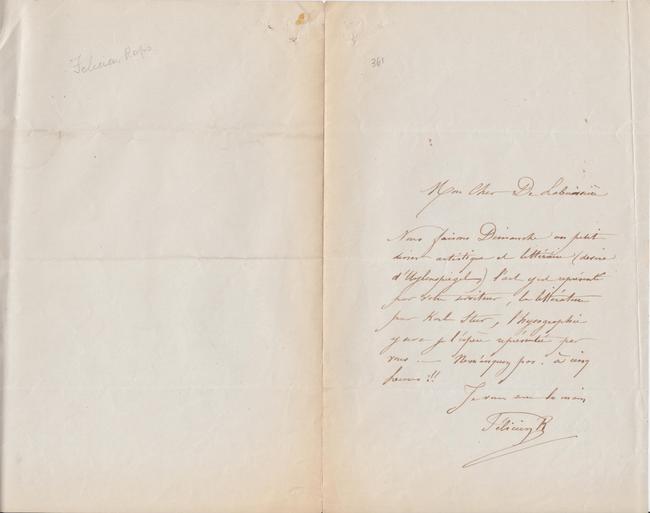 Félicien Rops
361
Mon Cher De
Nous faisons Dimanche un petit
diner artistique et littéraire (
d'Uylenspiegel) l'art y est représenté
par votre serviteur, la littérature
par Karl Stur, l'
y sera je l'espère représentée par
vous — N'y manquez pas. à cinq
heures!!
Je vous serre la main
Félicien R